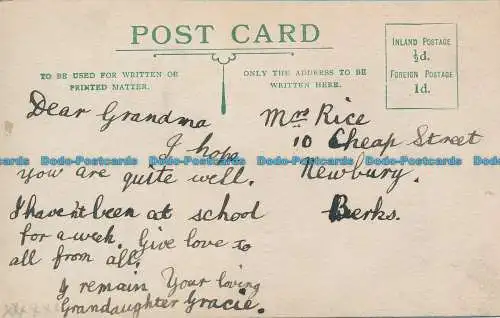 POST CARD
TO BE USED FOR WRITTEN OR
PRINTED MATTER.
ONLY THE ADDRESS TO BE
WRITTEN HERE.
INLAND POSTAGE
½d.
FOREIGN POSTAGE
1d.
Dear Grandma
I hope
you are quite well.
I havent been at school
for a week. Give love to
all from all.
I remain Your loving
Grandaughter Gracie.
Mrs Rice
10 Cheap Street
Newbury.
Berks.
Dodo-Postcards Dodo-Postcards Dodo-Postcards Dodo-Postcards